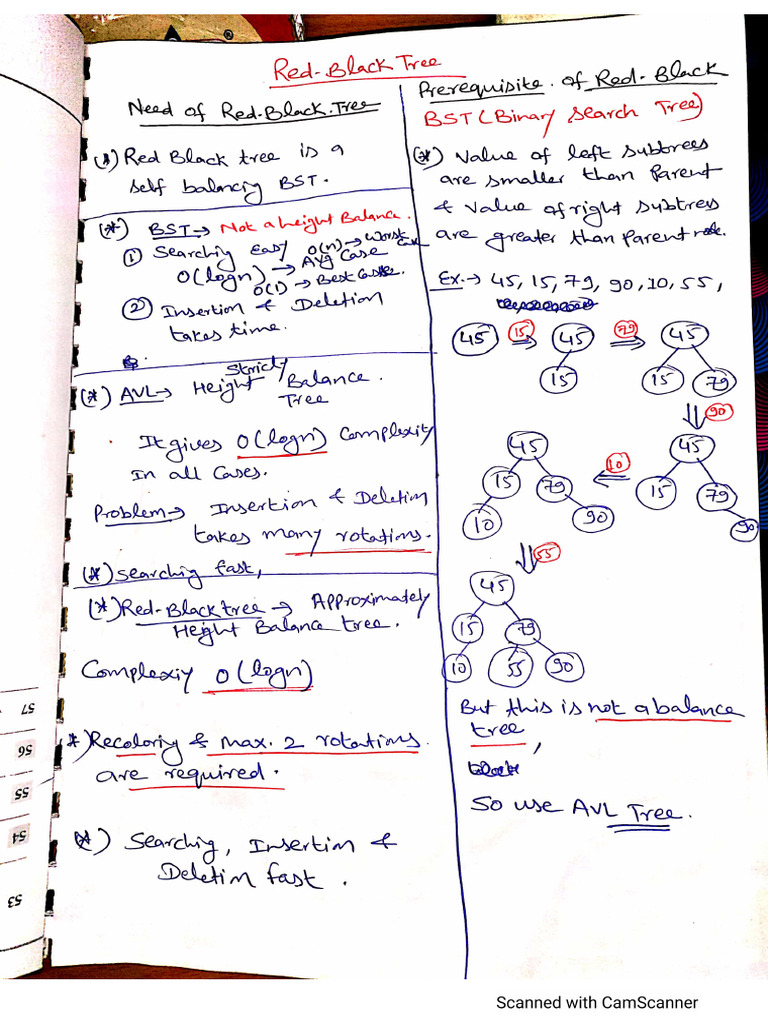 Red-Black Tree
Need of Red-Black Tree
(*) Red Black tree is a
self balancing BST.
(*) BST → Not a height Balance.
① Searching Easy O(n) → Worst Case
O(logn) → Avg Case
O(1) → Best Case.
② Insertion & Deletion
takes time.
(*) AVL → Height Strictly Balance
Tree
It gives O(logn) Complexity
In all Cases.
Problem → Insertion & Deletion
takes many rotations.
(*) searching fast,
(*) Red-Black tree → Approximately
Height Balance tree.
Complexiy O(logn)
*) Recoloring & max. 2 rotations
are required.
(*) Searching, Insertion &
Deletion fast.
Prerequisite of Red-Black
BST (Binary Search Tree)
(*) Value of left subtrees
are smaller than Parent
& Value of right subtress
are greater than Parent node.
Ex. → 45, 15, 79, 90, 10, 55,
45 ⇒ 15 45 ⇒ 79 45
15 15 79
⇓ 90
45 45
15 79 ⇐ 10 15 79
10 90 90
⇓ 55
45
15 79
10 55 90
But this is not a balance
tree,
So use AVL Tree.
57
56
55
54
53
Scanned with CamScanner